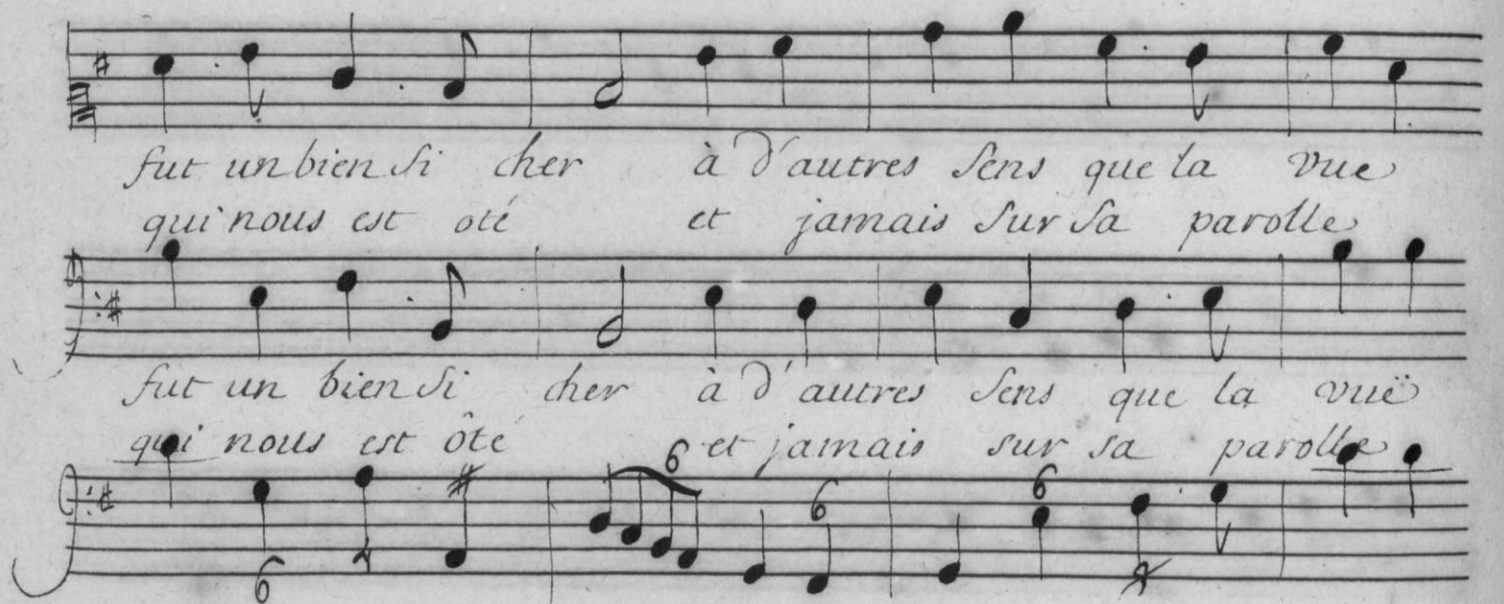 fut un bien si cher à d'autres sens que la vue
qui nous est oté et jamais sur sa parolle
fut un bien si cher à d'autres sens que la vuë
qui nous est ôté et jamais sur sa parolle
6
6 6
6